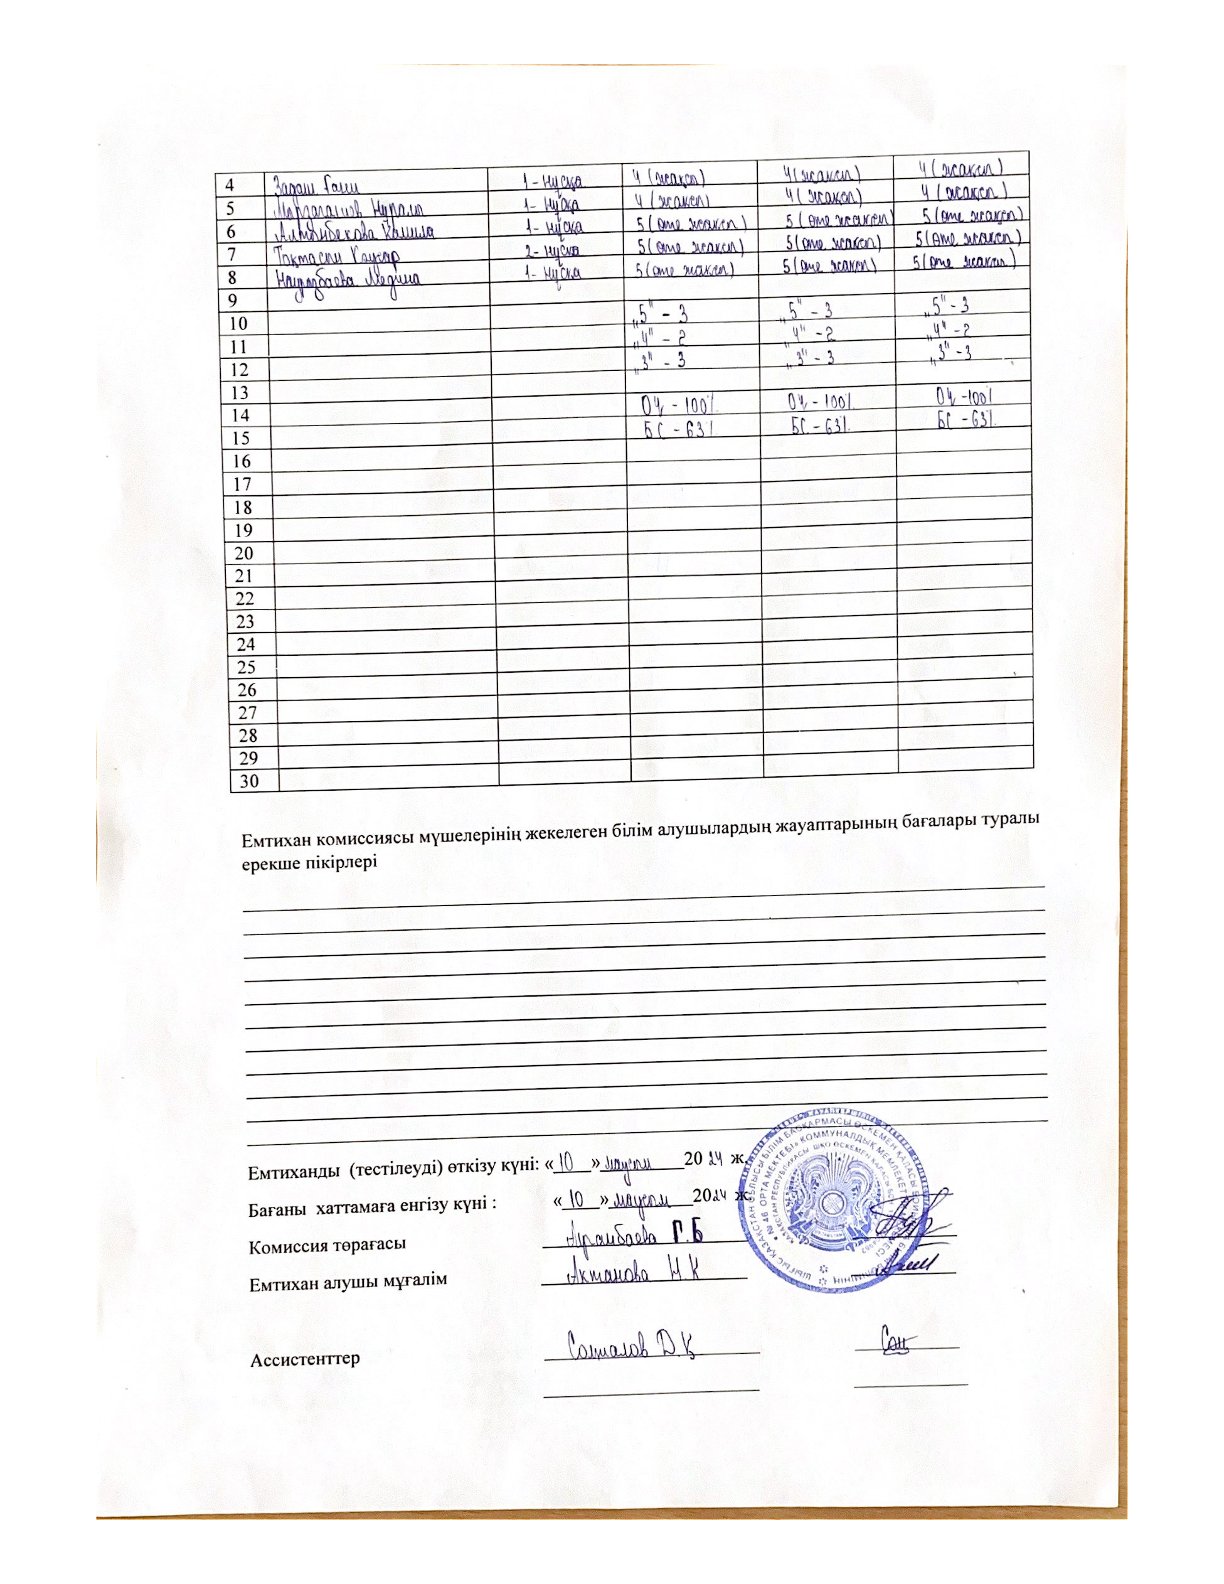 4 Задаш Ғани 1- нұсқа 4 (жақсы) 4 (жақсы) 4 (жақсы)
5 1- нұсқа 4 (жақсы) 4 (жақсы) 4 (жақсы)
6 Алтынбекова 1- нұсқа 5 (өте жақсы) 5 (өте жақсы) 5 (өте жақсы)
7 Тоқтасын Кәусар 2- нұсқа 5 (өте жақсы) 5 (өте жақсы) 5 (өте жақсы)
8 Наурызбаева Медина 1- нұсқа 5 (өте жақсы) 5 (өте жақсы) 5 (өте жақсы)
9
10 „5" - 3 „5" - 3 „5" - 3
11 „4" - 2 „4" - 2 „4" - 2
12 „3" - 3 „3" - 3 „3" - 3
13
14 ОҮ - 100% ОҮ - 100% ОҮ - 100%
15 БС - 63% БС - 63% БС - 63%
16
17
18
19
20
21
22
23
24
25
26
27
28
29
30
Емтихан комиссиясы мүшелерінің жекелеген білім алушылардың жауаптарының бағалары туралы
ерекше пікірлері
Емтиханды (тестілеуді) өткізу күні: «10» маусым 2024 ж.
Бағаны хаттамаға енгізу күні : «10» маусым 2024 ж.
Комиссия төрағасы Г.Б
Емтихан алушы мұғалім Актанова Н.К
Ассистенттер Д.Қ